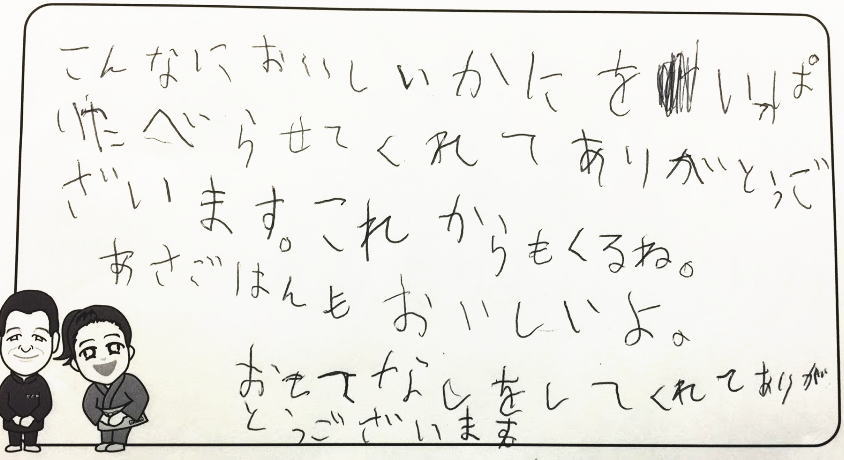 こんなに おいしい かに を いっぱ
いたべらせてくれて ありがとうご
ざいます。これ からもくるね。
あさごはんも おいしいよ。
おもてなしをしてくれてありが
とうございます